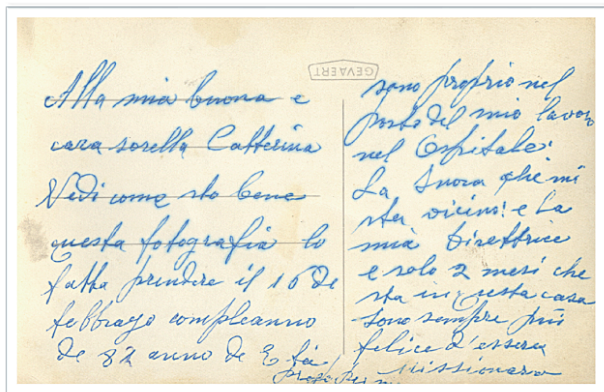 GEVAERT
Alla mia buona e
cara sorella Catterina
Vedi come sto bene
questa fotografia lo
fatta prindere il 16 de
febbrajo compleanno
de 82 anno de Età
sono proprio nel
posto del mio lavoro
nel Ospitale:
La Suora che mi
sta vicini: e La
mia Direttrice
e solo 2 mesi che
sta in questa casa
sono sempre più
felice d'essera
Missionara